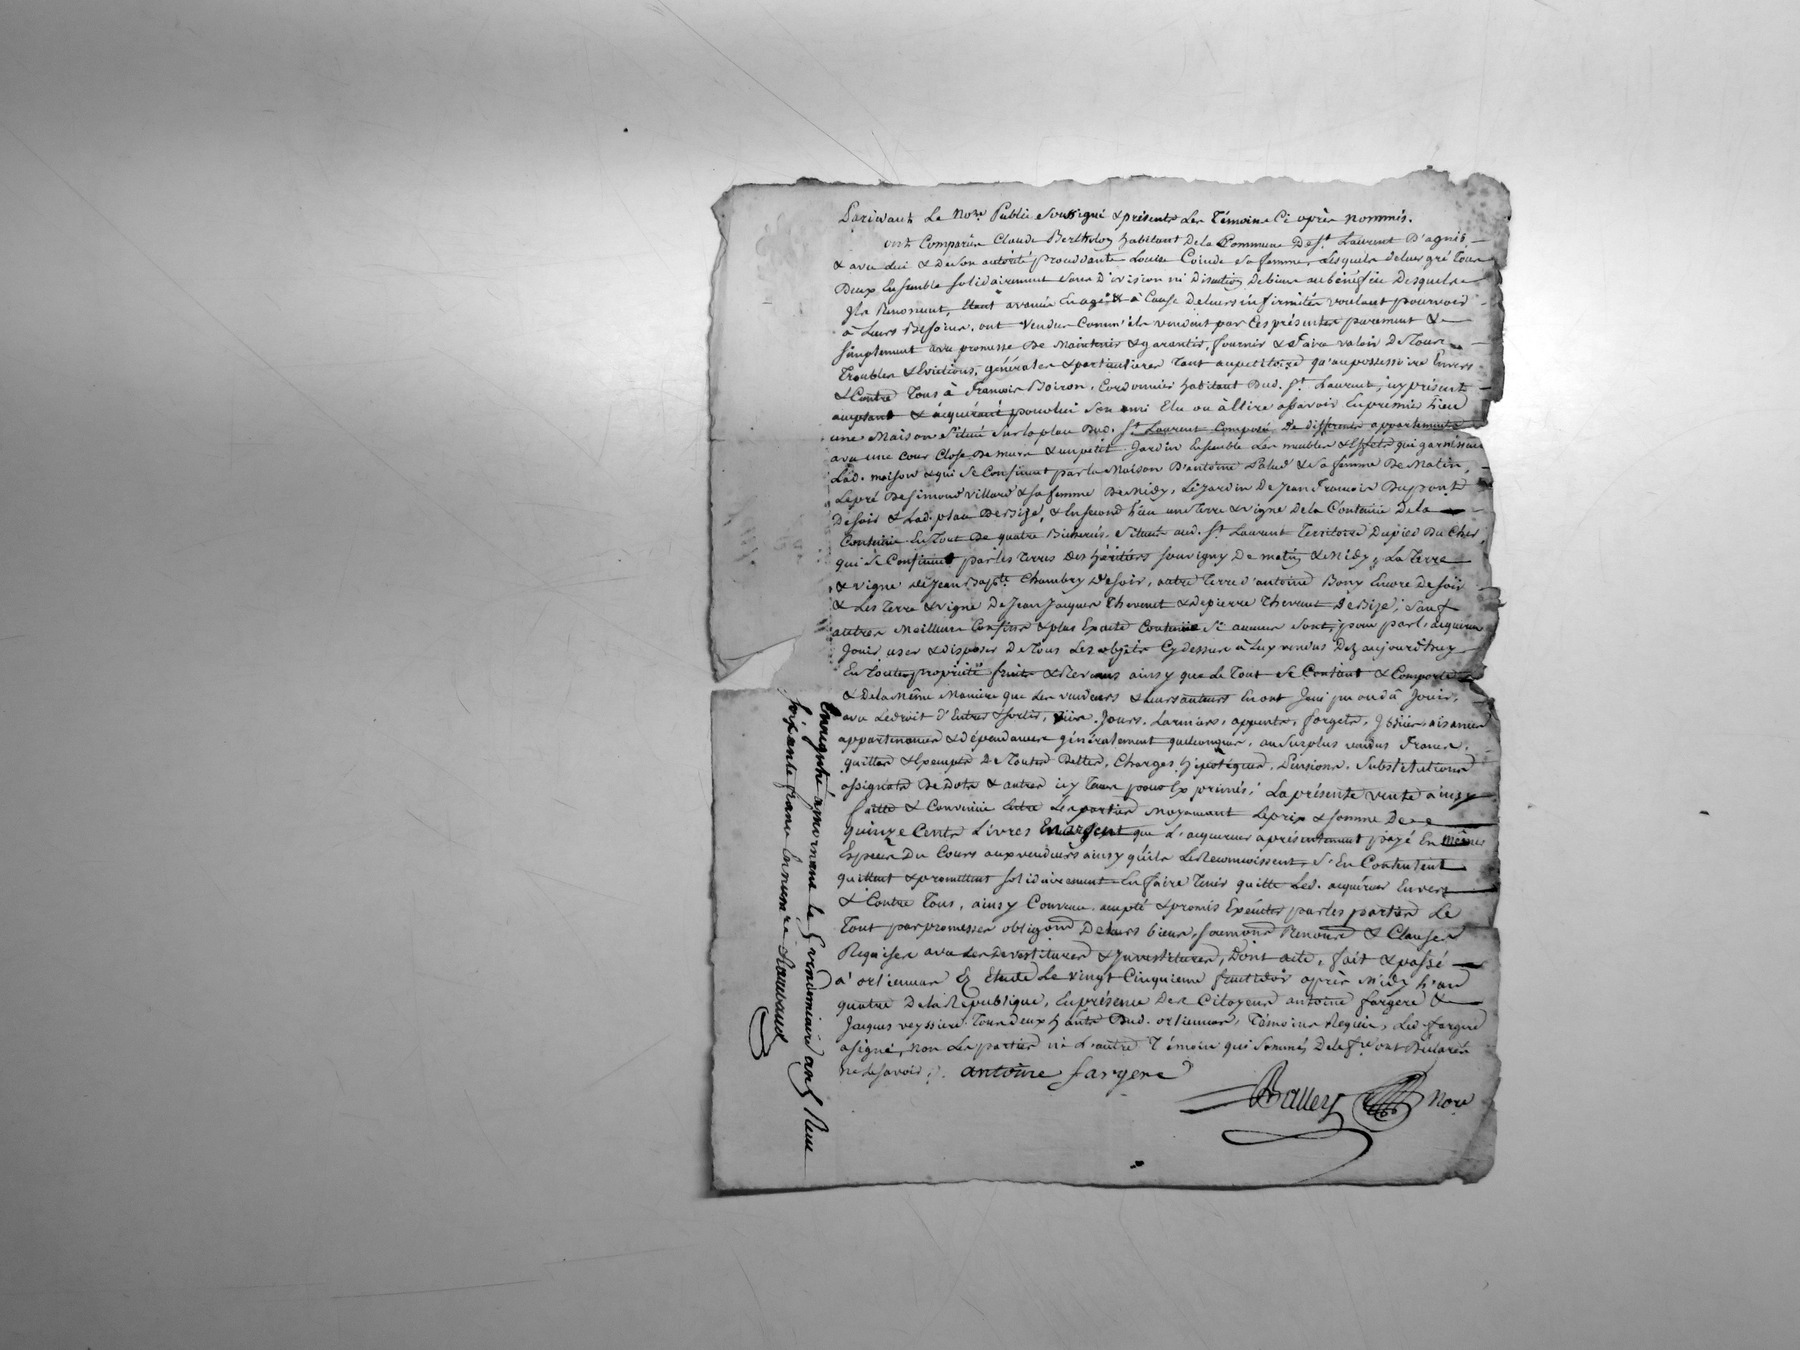 Pardevant Le Nore Public Soussigné & présents Les Témoins Ci après nommés.
ont Comparûs Claude Bertholon habitant De la Commune De St Laurent D'agnis
& avec lui & De Son autorité procedante Louise Coinde Sa femme, Lesquels de leur gré tous
Deux Ensemble Solidairement Sans Division ni Discution De biens au bénéfice Desquels
Ils Renoncent, étant avancés En age & à Cause de leurs infirmités voulant pourvoir
à Leurs Besoins. ont Vendus Comm'ils vendent par Ces présentes purement &
Simplement avec promesse De Maintenir & garantir, fournir & faire valoir De Tous
Troubles & Evictions, générales & particulieres Tant au petitoire qu'au possessoire Envers
& Contre Tous à François Boiron, Cordonnier habitant Dud. St Laurent, icy présent
acceptant & acquérant pour lui Son ami Elu ou à Elire assavoir En premier Lieu
une Maison Située Sur la place Dud. St Laurent Composée De differents appartements
avec une Cour Close De murs & un petit Jardin Ensemble Les meubles & Effets qui garnissent
Lad. maison & qui Se Confinent par la Maison D'antoine & Sa femme De Matin,
Le pré De Simond Villard & Sa femme De Midy, Le Jardin De Jean François Dupont
De Soir & Lad. place De Bize, & En Second Lieu une Terre & vigne De la Contenüe De la
Contenüe En Tout De quatre Bicherées Située aud. St Laurent Territoire Du pied Du Cher,
qui Se Confinent par les Terres Des héritiers Souvigny De matin & Midy, La Terre
& vigne de Jean Bapte Chambry De Soir, autre Terre d'antoine Bony Encore de Soir
& Les Terre & vigne De Jean Jacques Thevenet & De pierre Thevenet De Bize, Sauf
autres Meilleurs Confins & plus Exacte Contenüe Si aucuns Sont, pour par L'acquereur
Jouir user & Disposer De Tous Les objets Cy dessus à Luy vendus Dez aujourd'huy
En Toute propriété fruits & Revenus ainsy que Le Tout Se Contient & Comporte
& De la Même Maniere que Les vendeurs & Leurs auteurs En ont Joui pu ou dû Jouir,
avec Le droit D'Entrées & Sorties, vües, Jours, Larmiers, appuits, forgets, Issües, aisances
appartenances & Dépendances généralement quelconques, au Surplus vendus francs,
quittes & Exempts De Toutes Dettes, Charges, hipotèques, Pensions, Substitutions
assignats De Dots & autres icy Tenus pour Exprimés; La présente vente ainsy
faitte & Convenüe Entre Les parties Moyennant Le prix & Somme De
quinze Cents Livres En argent que L'acquereur a présentement payé En mêmes
Espèces Du Cours aux vendeurs ainsy qu'ils Le Reconnoissent, S'En Contentent
quittent & promettent Solidairement En faire Tenir quitte Led. acquéreur Envers
& Contre Tous, ainsy Convenu accepté & promis Exécuter par les parties Le
Tout par promesses obligaõn De Leurs biens, Soumõns Renonõn & Clauses
Requises avec Les Devestitures & Investitures, Dont acte, fait & passé
à orlienas En Etude Le vingt Cinquieme fructidor après Midy L'an
quatre De la République, En présence Des Citoyens antoine fargere &
Jacques veyssiere Tous deux hants Dud. orlienas, Témoins Requis, Led. fargere
a Signé, non Les parties ni L'autre Témoin qui Sommés De le fre ont Déclarés
ne Le Savoir.
antoine fargere
Balley Nore
Enregistré à mornant le 5 vendemiaire an 5 Reçu
Soixante francs en numre